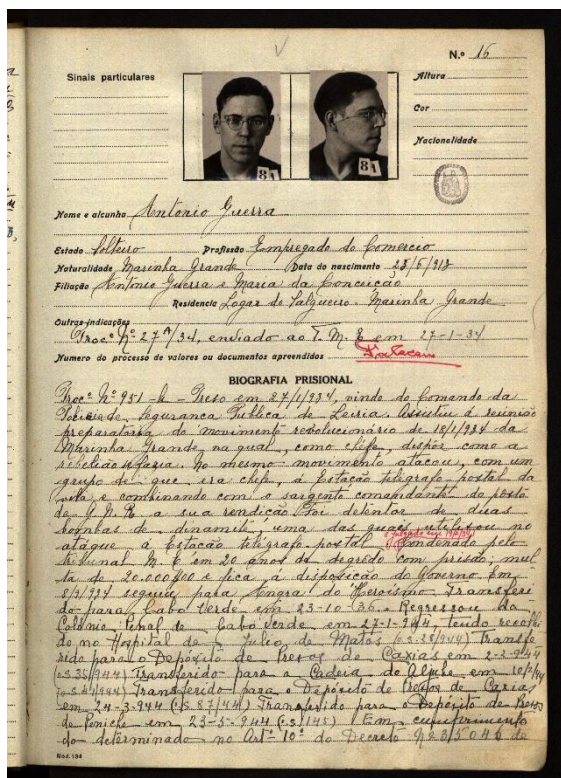 N.º 16
Sinais particulares
Altura
Cor
Nacionalidade
81
81
Nome e alcunha Antonio Guerra
Estado Solteiro Profissão Empregado do Comercio
Naturalidade Marinha Grande Data do nascimento 23/6/913
Filiação António Guerra e Maria da Conceição
Residencia Logar de Salgueiro - Marinha Grande
Outras indicações
Proc.º Nº 27 A/34, enviado ao T. M. E em 27-1-34
Numero do processo de valores ou documentos apreendidos
BIOGRAFIA PRISIONAL
Proc.º Nº 951-h - Preso em 27/1/934, vindo do Comando da
Policia de Segurança Publica de Leiria. Assistiu á reunião
preparatoria do movimento revolucionário de 18/1/934 da
Marinha Grande na qual, como chefe, dispôs como a
rebelião se faria. No mesmo movimento atacou, com um
grupo de que era chefe, a Estação telégrafo postal da
vila e combinando com o sargento comandante do posto
da G. N. R. a sua rendição. Foi detentor de duas
bombas de dinamite, uma das quais utilisou no
ataque á Estação telégrafo postal. Condenado pelo
tribunal M. E em 20 anos de degredo com prisão; mul
ta de 20.000$00 e fica á disposição do Governo. Em
8/9/934 seguiu para Angra do Heroismo. Transferi
do para Cabo Verde em 23-10-36. Regressou da
Colónia Penal de Cabo Verde em 27-1-944, tendo recolhi
do no Hospital de Julio de Matos (o.s. 28/944) Transfe
rido para o Depósito de Presos de Caxias em 2-2-944
(o.s 35/944) Transferido para a Cadeia do Aljube em 10/2/944
(o.s 41/944) Transferido para o Depósito de Presos de Caxias
em 24-3-944 (o.s. 87/44) Transferido para o Depósito de Presos
de Peniche em 23-5-944 (o.s/148) Em cumprimento
do determinado no Artº 10º do Decreto Nº 35046 de
Mod. 134